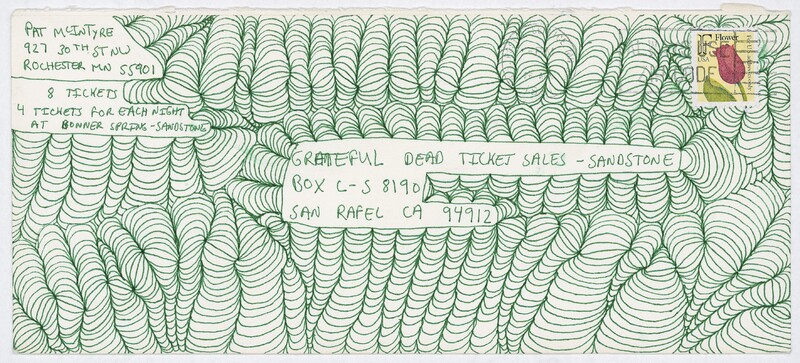 PAT MCINTYRE
927 30TH ST NW
ROCHESTER MN 55901
8 TICKETS
4 TICKETS FOR EACH NIGHT
AT BONNER SPRING-SANDSTONE
GRATEFUL DEAD TICKET SALES - SANDSTONE
BOX C-S 8190
SAN RAFEL CA 94912
F Flower
USA
USE
CODE